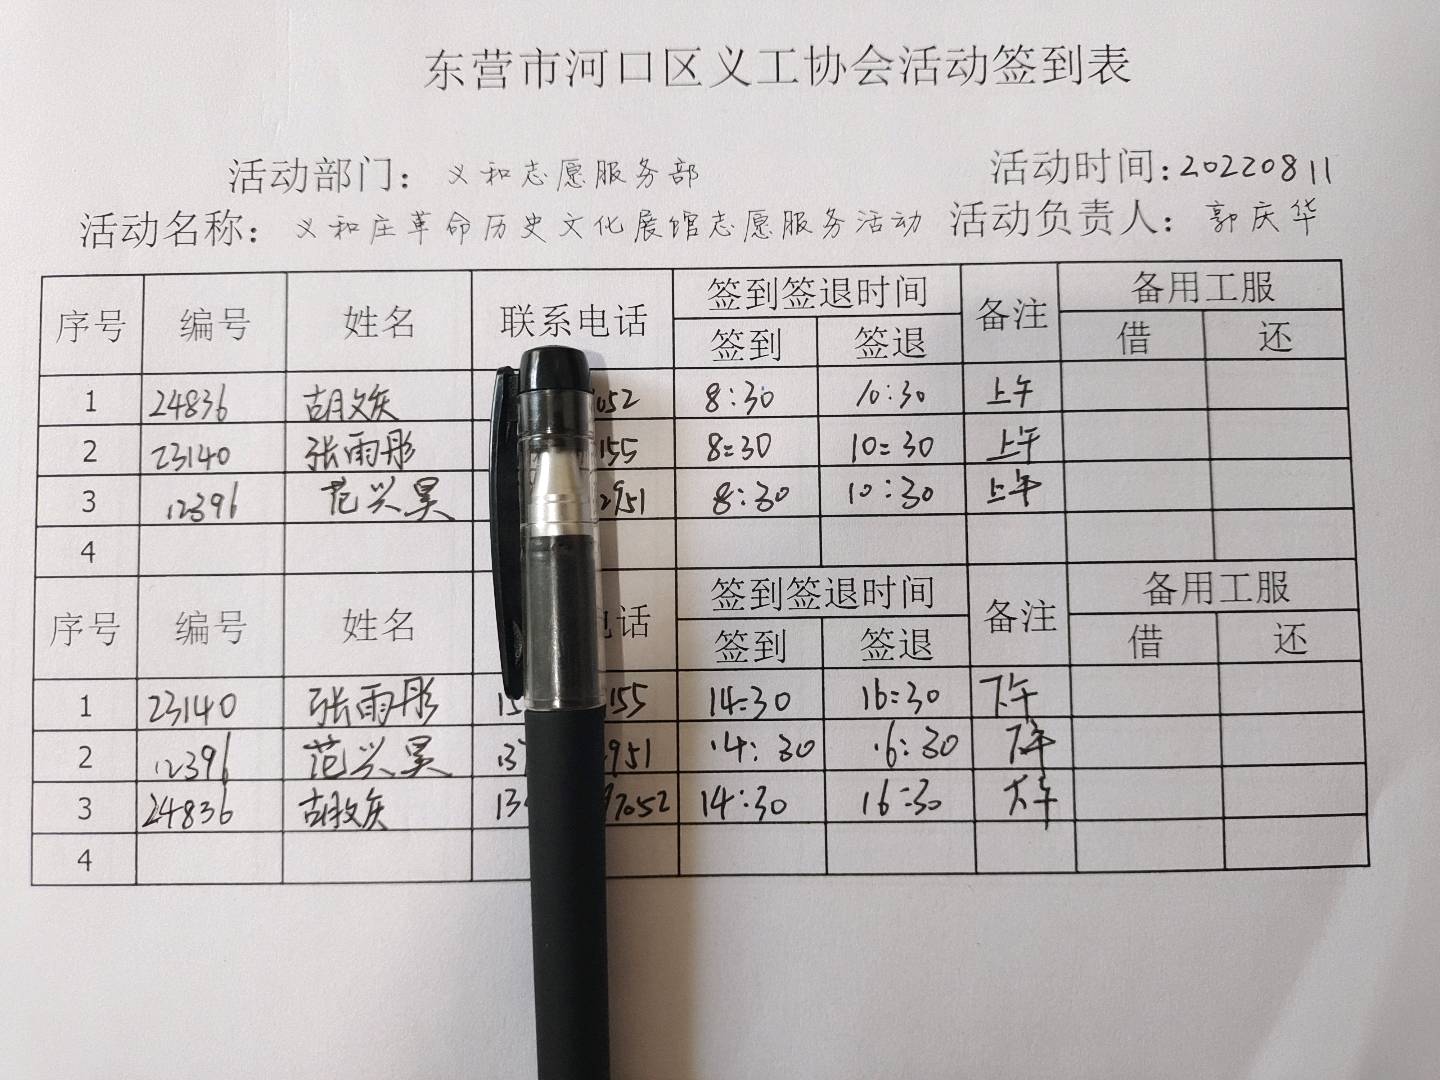 东营市河口区义工协会活动签到表
活动部门：义和志愿服务部 活动时间:20220811
活动名称：义和庄革命历史文化展馆志愿服务活动 活动负责人：郭庆华
序号 编号 姓名 联系电话 签到签退时间 备注 备用工服
签到 签退 借 还
1 24836 052 8:30 10:30 上午
2 23140 张雨彤 155 8:30 10:30 上午
3 12396 范兴昊 2951 8:30 10:30 上午
4
序号 编号 姓名 话 签到签退时间 备注 备用工服
签到 签退 借 还
1 23140 张雨彤 15 155 14:30 16:30 下午
2 12396 范兴昊 13 951 14:30 16:30 下午
3 24836 13 97052 14:30 16:30 下午
4